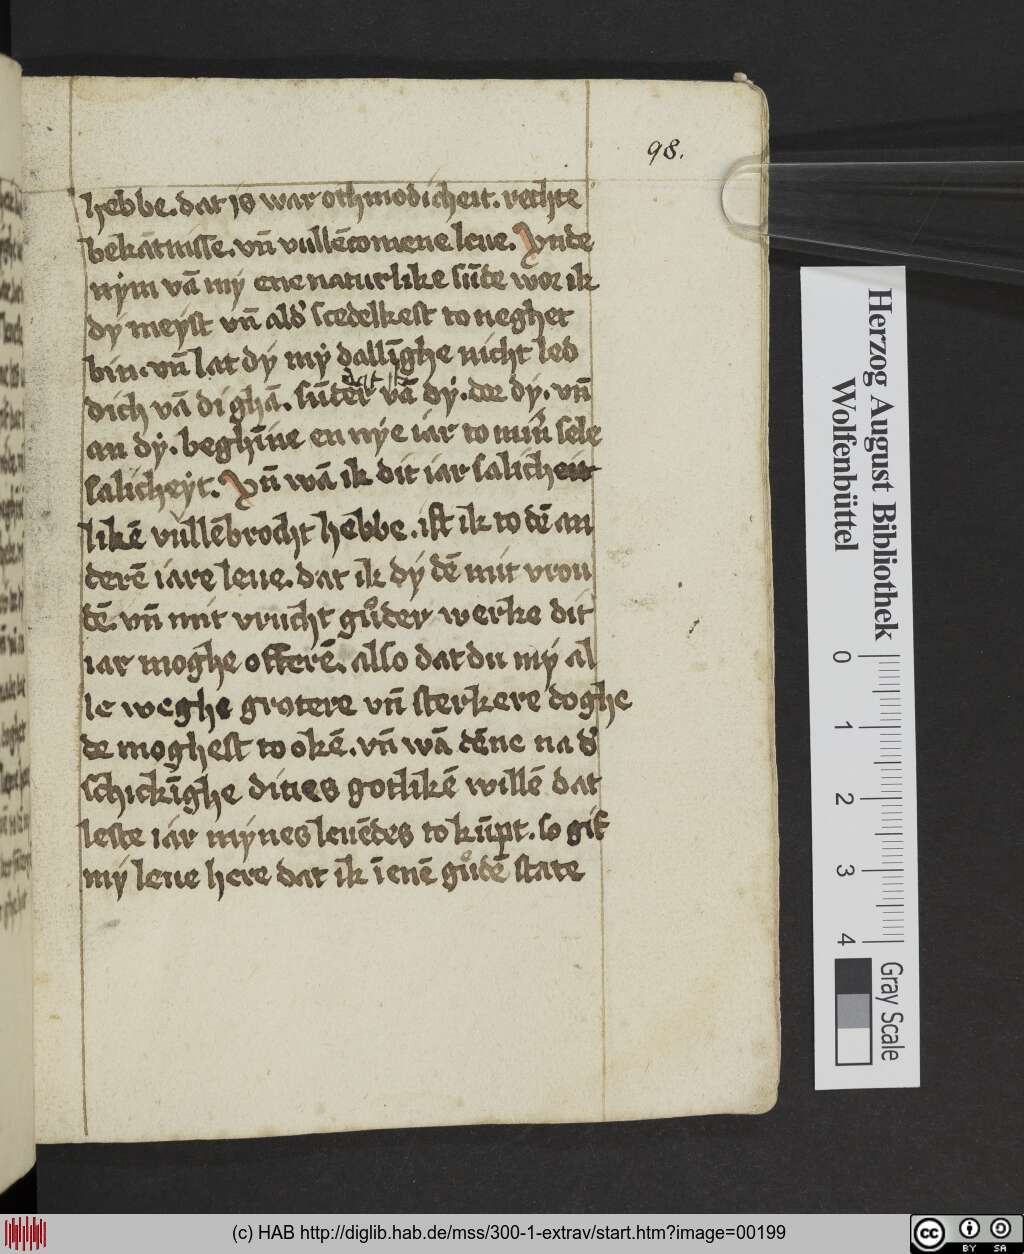 98.
hebbe. dat is war othmodicheit. rechte
bekātnisse. vn̄ vullēcomene leue. Vnde
nẏm vā mẏ ene naturlike sūde wor ik
dẏ meẏst vn̄ ald' scedelkest to neghet
bin. vn̄ lat dẏ mẏ dallīghe nicht led
dich vā di ghā. sūder vā dẏ. dor dẏ. vn̄
an dẏ. beghīne en nẏe iar to mīn' sele
salicheẏt. Vn̄ wā ik dit iar salicheit
likē vullēbrocht hebbe. ist ik to dē an
derē iare leue. dat ik dẏ dē mit vrou
dē. vn̄ mit vrucht gůder werke dit
iar moghe offerē. also dat du mẏ al
le weghe grotere vn̄ sterkere doghe
de moghest to okē. vn̄ wā dēne na d'
schickīghe dines gotlikē willē dat
leste iar mẏnes leuēdes to kūpt. so gif
mẏ leue here dat ik ī enē gůdē state
Herzog August Bibliothek
Wolfenbüttel
0 1 2 3 4
Gray Scale
(c) HAB http://diglib.hab.de/mss/300-1-extrav/start.htm?image=00199
cc BY SA